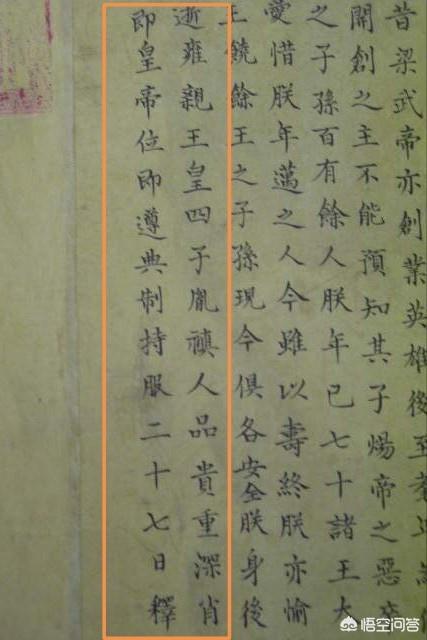 昔梁武帝亦創業英雄後至耄
開創之主不能預知其子煬帝之惡卒
之子孫百有餘人朕年已七十諸王大
愛惜朕年邁之人今雖以壽終朕亦愉
王饒餘王之子孫現今俱各安全朕身後
逝雍親王皇四子胤禛人品貴重深肖
即皇帝位即遵典制持服二十七日釋
悟空问答